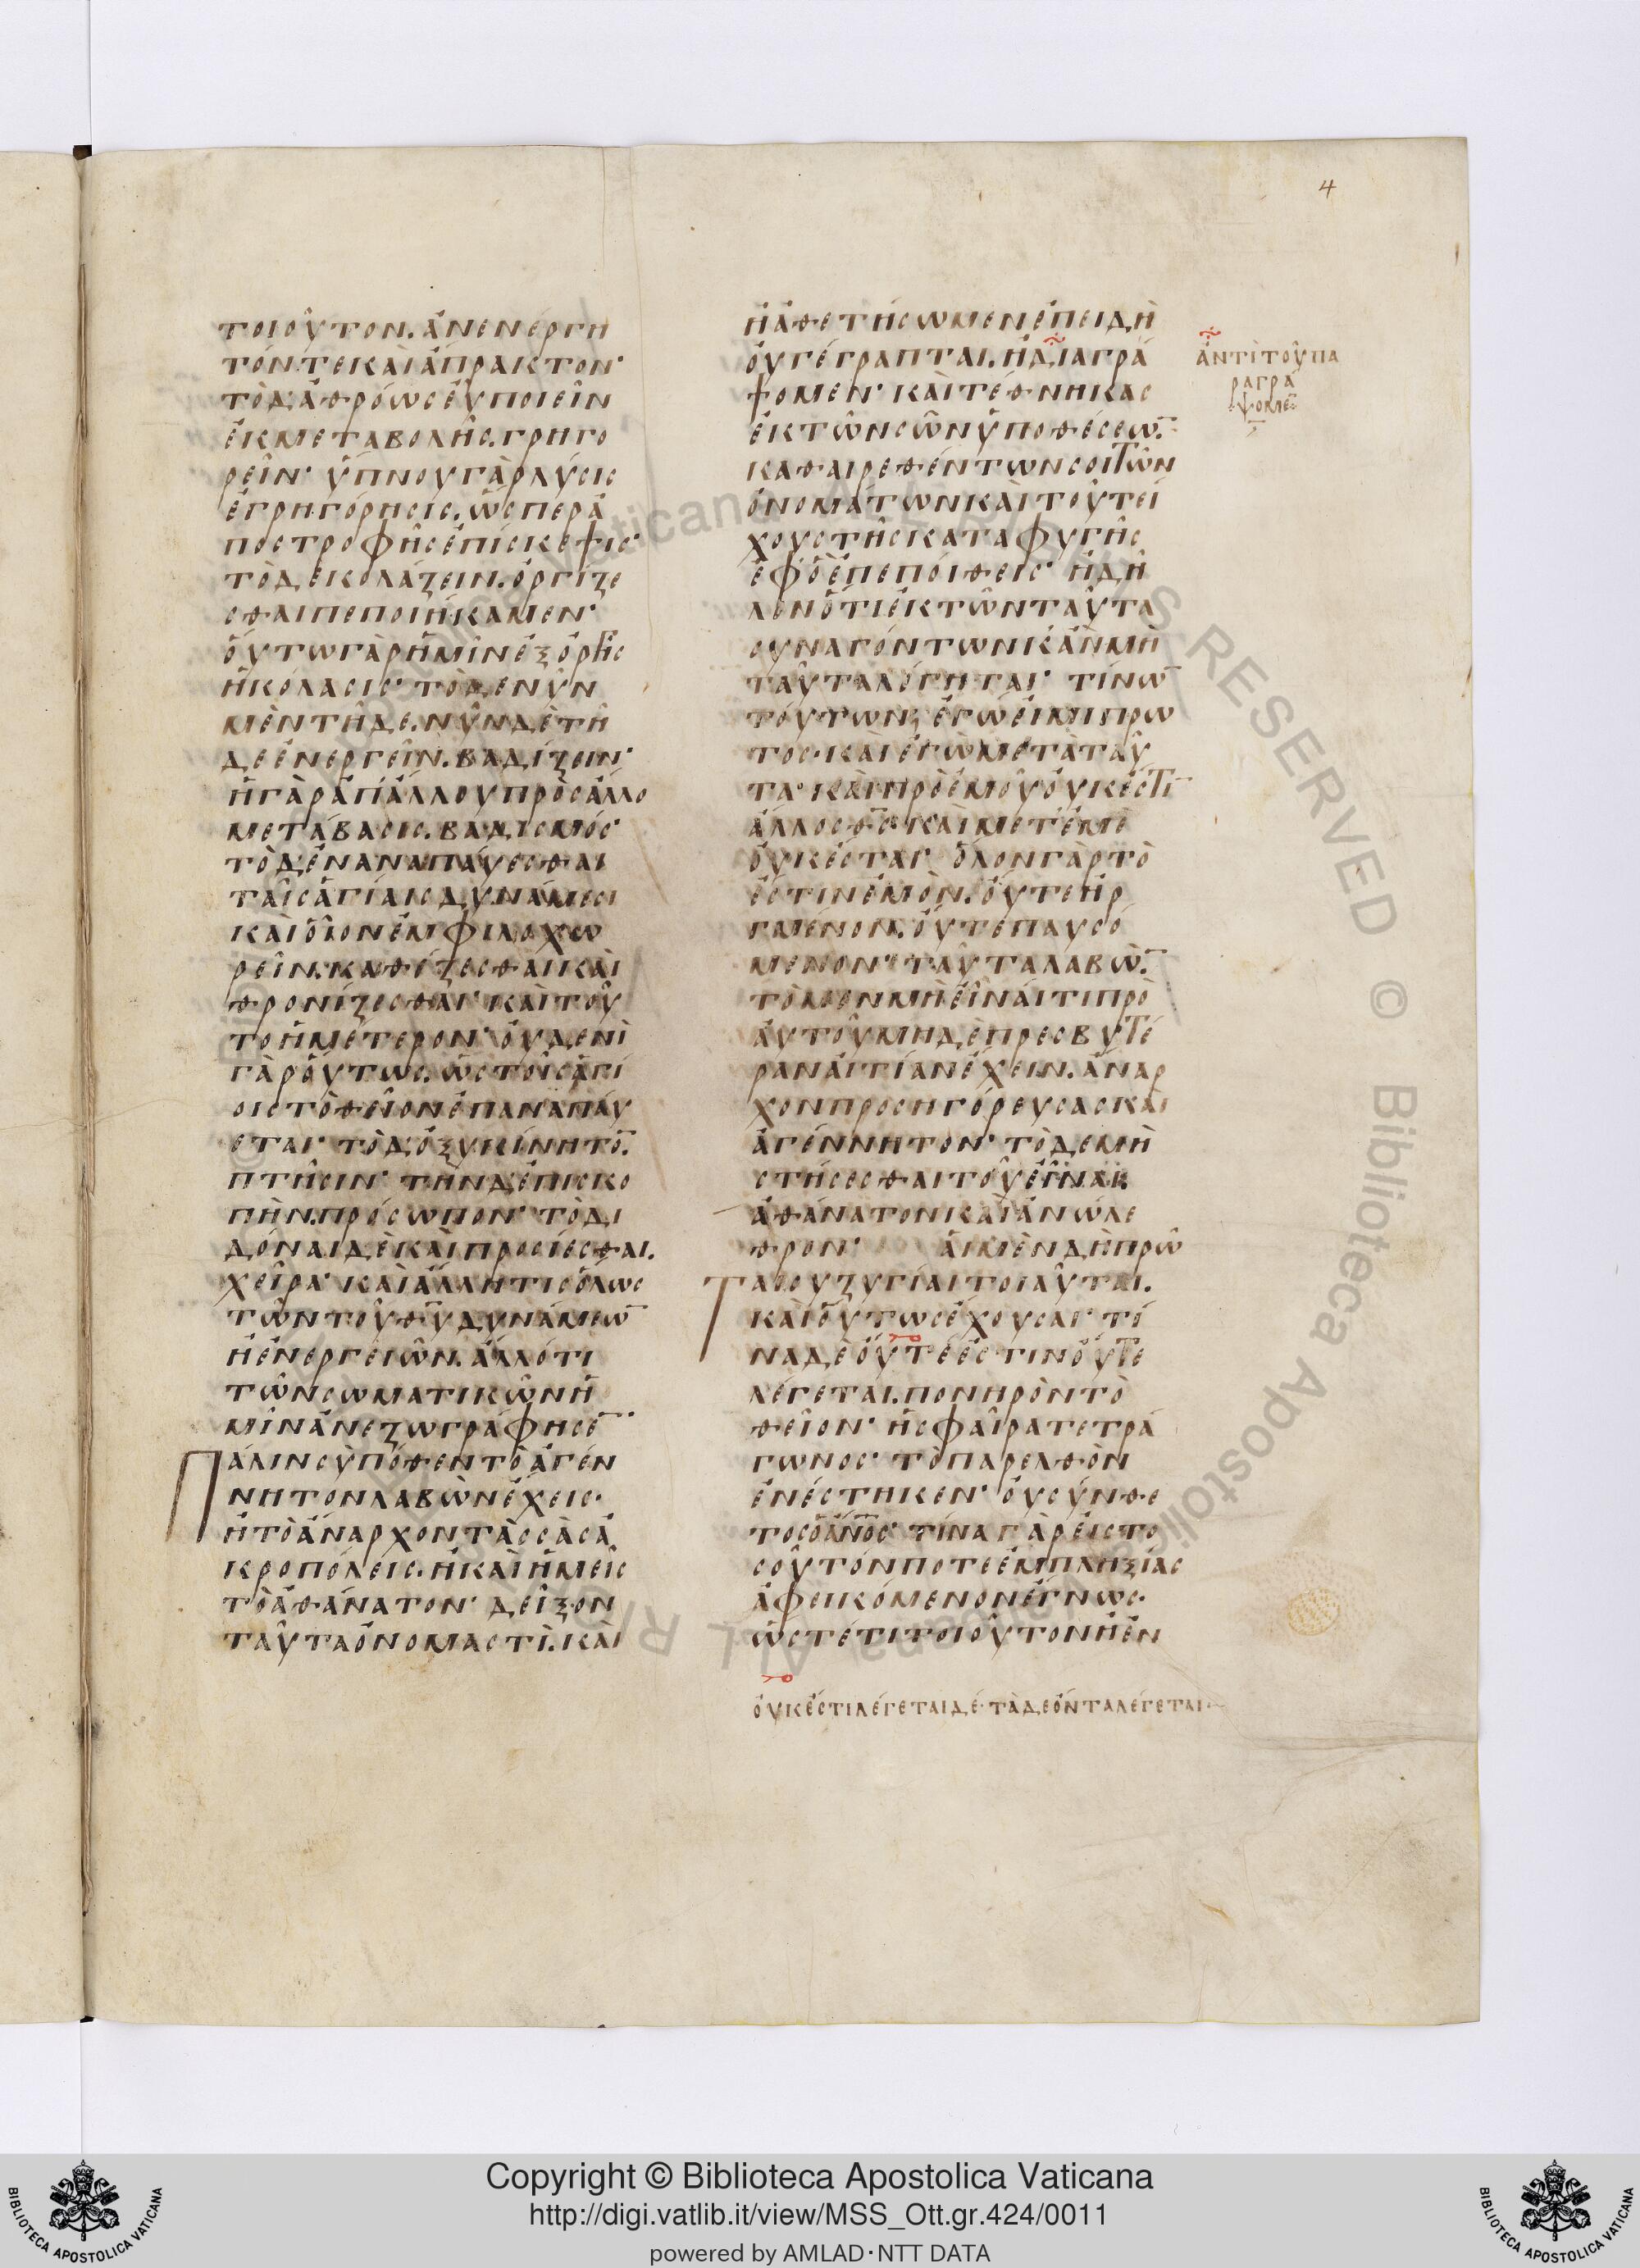 4
τοιοῦτον. ἀνενέργη
τόν τε καὶ ἄπρακτον·
τὸ δ' ἀθρόως εὐποιεῖν
ἐκ μεταβολῆς. γρηγο
ρεῖν· ὕπνου γὰρ λύσις
ἐγρηγόρησις. ὥσπερ ἀ
ποστροφῆς ἐπίσκεψις·
τὸ δὲ κολάζειν. ὀργίζε
σθαι πεποιήκαμεν·
οὕτω γὰρ ἡμῖν ἐξ ὀργῆς
ἡ κόλασις· τὸ δὲ νῦν
μὲν τῇδε. νῦν δὲ τῇ
δε ἐνεργεῖν. βαδίζειν·
ἡ γὰρ ἀπ' ἄλλου πρὸς ἄλλο
μετάβασις. βαδισμός·
τὸ δὲ ἐναναπαύεσθαι
ταῖς ἁγίαις δυνάμεσι
καὶ οἷον ἐμφιλοχω
ρεῖν. καθίζεσθαι καὶ
θρονίζεσθαι· καὶ τοῦ
το ἡμέτερον· οὐδενὶ
γὰρ οὕτως. ὡς τοῖς ἁγί
οις τὸ θεῖον ἐπαναπαύ
εται· τὸ δ' ὀξυκίνητο̅.
πτῆσιν· τὴν δ' ἐπισκο
πὴν. πρόσωπον· τὸ δι
δόναι δὲ καὶ προσίεσθαι.
χεῖρα· καὶ ἄλλη τις ὅλως
τῶν τοῦ θ̅υ̅ δυνάμεω̅
ἢ ἐνεργειῶν. ἄλλό τι
τῶν σωματικῶν ἡ
μῖν ἀνεζωγράφησε̅·
Πάλιν σὺ πόθεν τὸ ἀγέν
νητον λαβὼν ἔχεις·
ἢ τὸ ἄναρχον τὰς σὰς ἀ
κροπόλεις. ἢ καὶ ἡμεῖς
τὸ ἀθάνατον· δεῖξον
ταῦτα ὀνομαστὶ. καὶ
ἢ ἀθετήσωμεν ἐπειδὴ
οὐ γέγραπται. ἢ διαγρά
ψομεν· καὶ τέθνηκας
ἐκ τῶν σῶν ὑποθέσεω̅.
καθαιρεθέντων σοι τῶν
ὀνομάτων καὶ τοῦ τεί
χους τῆς καταφυγῆς
ἐφ' ὃ ἐπεποίθεις· ἢ δῆ
λον ὅτι ἐκ τῶν ταῦτα
συναγόντων κἂν μὴ
ταῦτα λέγηται· τίνω̅
τούτων; ἐγώ εἰμι πρῶ
τος. καὶ ἐγὼ μετὰ ταῦ
τα· καὶ πρὸ ἐμοῦ οὐκ ἔστι̅
ἄλλος θ̅ς̅ καὶ μετ' ἐμὲ
οὐκ ἔσται· ὅλον γὰρ τὸ
ἔστιν ἐμὸν. οὔτε ἠρ
γμένον. οὔτε παυσό
μενον· ταῦτα λαβὼ̅.
τὸ μὲν μὴ εἶναί τι πρὸ
αὐτοῦ μηδὲ πρεσβυτέ
ραν αἰτίαν ἔχειν. ἄναρ
χον προσηγόρευσας καὶ
ἀγέννητον· τὸ δὲ μὴ
στήσεσθαι τοῦ εἶναι.
ἀθάνατον καὶ ἀνώλε
θρον· αἱ μὲν δὴ πρῶ
Ται συζυγίαι τοιαῦται.
καὶ οὕτως ἔχουσαι· τί
να δὲ οὔτε ἔστιν οὔτε
λέγεται. πονηρὸν τὸ
θεῖον· ἡ σφαῖρα τετρά
γωνος· τὸ παρελθὸν
ἐνέστηκεν· οὐ σύνθε
τος ὁ ἄν̅ο̅ς̅· τίνα γὰρ εἰς το
σοῦτόν ποτε ἐμπληξίας
ἀφεικόμενον ἔγνως.
ὥστέ τι τοιοῦτον ἢ ἐν
ἀντὶ τοῦ πα
ραγρά
ψομε̅
οὐκ ἔστι λέγεται δέ· τὰ δὲ ὄντα λέγεται·
Copyright © Biblioteca Apostolica Vaticana
http://digi.vatlib.it/view/MSS_Ott.gr.424/0011
powered by AMLAD·NTT DATA
BIBLIOTECA APOSTOLICA VATICANA
BIBLIOTECA APOSTOLICA VATICANA